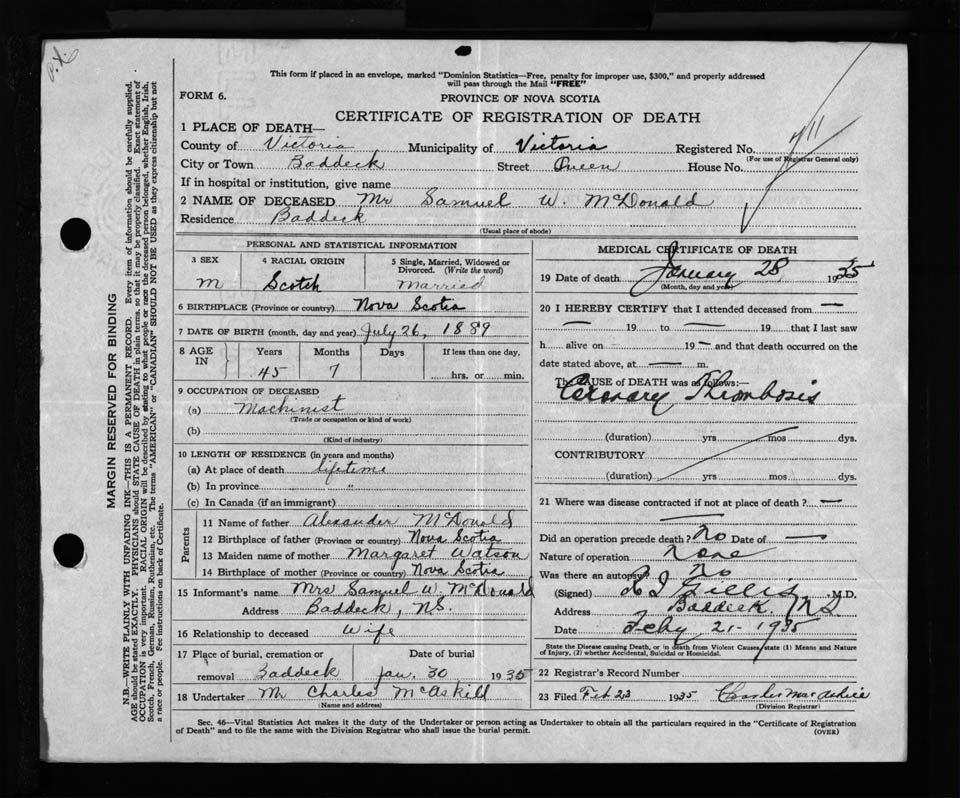 This form if placed in an envelope, marked "Dominion Statistics—Free, penalty for improper use, $300," and properly addressed
will pass through the Mail "FREE"
FORM 6.
PROVINCE OF NOVA SCOTIA
CERTIFICATE OF REGISTRATION OF DEATH
1 PLACE OF DEATH—
County of Victoria Municipality of Victoria Registered No.
(For use of Registrar General only)
City or Town Baddeck Street Queen House No.
If in hospital or institution, give name
2 NAME OF DECEASED Mr Samuel W. McDonald
Residence Baddeck
(Usual place of abode)
PERSONAL AND STATISTICAL INFORMATION
3 SEX 4 RACIAL ORIGIN 5 Single, Married, Widowed or
Divorced. (Write the word)
M Scotch Married
6 BIRTHPLACE (Province or country) Nova Scotia
7 DATE OF BIRTH (month, day and year) July 26, 1889
8 AGE IN Years Months Days If less than one day,
45 7 hrs. or min.
9 OCCUPATION OF DECEASED
(a) Machinist
(Trade or occupation or kind of work)
(b)
(Kind of industry)
10 LENGTH OF RESIDENCE (in years and months)
(a) At place of death lifetime
(b) In province "
(c) In Canada (if an immigrant)
Parents
11 Name of father Alexander McDonald
12 Birthplace of father (Province or country) Nova Scotia
13 Maiden name of mother Margaret Watson
14 Birthplace of mother (Province or country) Nova Scotia
15 Informant's name Mrs Samuel W. McDonald
Address Baddeck, N.S.
16 Relationship to deceased Wife
17 Place of burial, cremation or Date of burial
removal Baddeck Jan. 30 1935
18 Undertaker Mr Charles McAskill
(Name and address)
MEDICAL CERTIFICATE OF DEATH
19 Date of death January 28, 1935
(Month, day and year)
20 I HEREBY CERTIFY that I attended deceased from —
— 19 to — 19 that I last saw
h alive on 19 — and that death occurred on the
date stated above, at — m.
The CAUSE of DEATH was as follows:—
Coronary Thrombosis
(duration) yrs mos dys.
CONTRIBUTORY
(duration) yrs mos dys.
21 Where was disease contracted if not at place of death? —
Did an operation precede death? No Date of —
Nature of operation None
Was there an autopsy? No
(Signed) Gillis M.D.
Address Baddeck. NS
Date Feby 21- 1935
State the Disease causing Death, or in death from Violent Causes, state (1) Means and Nature
of Injury, (2) whether Accidental, Suicidal or Homicidal.
22 Registrar's Record Number
23 Filed Feb 23 1935 Charles
(Division Registrar)
Sec. 46—Vital Statistics Act makes it the duty of the Undertaker or person acting as Undertaker to obtain all the particulars required in the "Certificate of Registration
of Death" and to file the same with the Division Registrar who shall issue the burial permit.
(OVER)
MARGIN RESERVED FOR BINDING
N.B.—WRITE PLAINLY WITH UNFADING INK—THIS IS A PERMANENT RECORD. Every item of information should be carefully supplied.
AGE should be stated EXACTLY. PHYSICIANS should STATE CAUSE OF DEATH in plain terms, so that it may be properly classified. Exact statement of
OCCUPATION is very important. RACIAL ORIGIN will be described by stating to what people or race the deceased person belonged, whether English, Irish,
Scotch, French, German, Russian, Ruthenian, etc. The terms "AMERICAN" or "CANADIAN" SHOULD NOT BE USED as they express citizenship but not
a race or people. Fee instructions on back of Certificate.